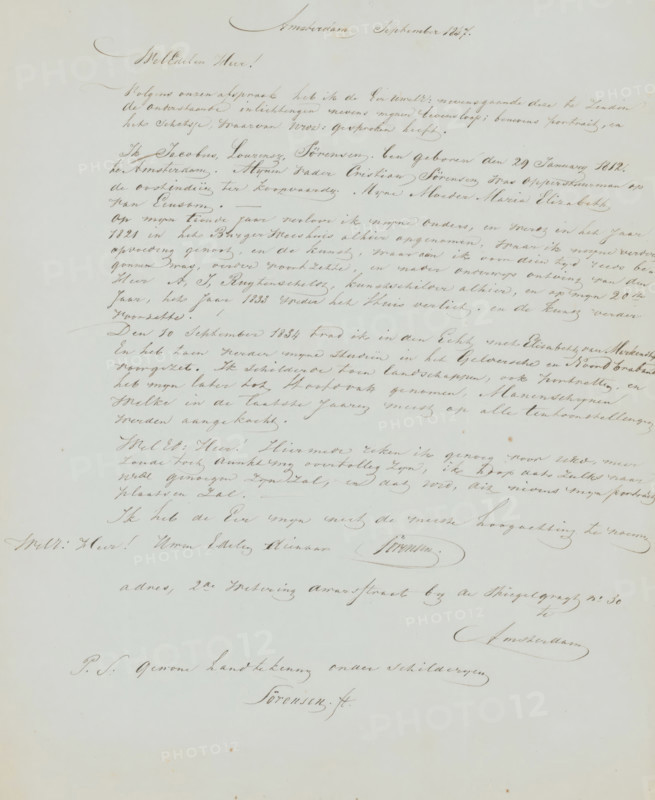 Amsterdam September 1857.
WelEdelen Heer!
Volgens onzen afspraak heb ik de Eer UwelE: nevensgaande deze te Zenden
de inlichtingen nevens mijn levensloop; benevens portrait, en
het schetsje, waarvan Uwe gesproken heeft.
Ik Jacobus, Lourenz, Sörensen, ben geboren den 29 January 1812.
te Amsterdam. Mijn Vader Cristiaan Sörensen was opperstuurman op
de oostindiën ter koopvaardy. Mijn Moeder Maria Elizabeth
van
op mijn tiende jaar verloor ik mijne ouders, en werd in het Jaar
1821 in het Burger Weeshuis alhier opgenomen, waar ik mijne verdere
opvoeding genoot, en de kunst, waarvan ik van dien tyd reeds
was, verder voortzette, en nader onderwijs ontving van den
Heer A, J, kunstschilder alhier, en op mijn 20ste
Jaar, het Jaar 1833 weder het Huis verliet, en de kunst verder
voortzette.
Den 10 September 1834 trad ik in den Echt met Elisabeth van
En heb toen verder mijne studien in het Geldersche en Noord Braband
voortgezet. Ik schilderde toen landschappen, ook portretten, en
heb mijn later tot Hoofdvak genomen, Maneschijnen
Welke in de laatste Jaaren meest op alle tentoonstellingen
werden aangekocht.
Wel Ed: Heer! Hiermede reken ik genoeg voor, meer
zoude toch overtollig zyn, ik hoop dat zulks naar
UwE genoegen zijn zal, en dat UwE, dit nevens mijn portrait
plaatsen zal.
Ik heb de Eer mijn met de meeste hoogachting te noemen
WelE: Heer! Uwen Edelen dienaar Sörensen.
adres, 2de Wetering dwarsstraat by de Spiegelgragt No 30
te
Amsterdam
P. S. gewone handtekening onder schilderyen
Sörensen. ft
PHOTO12